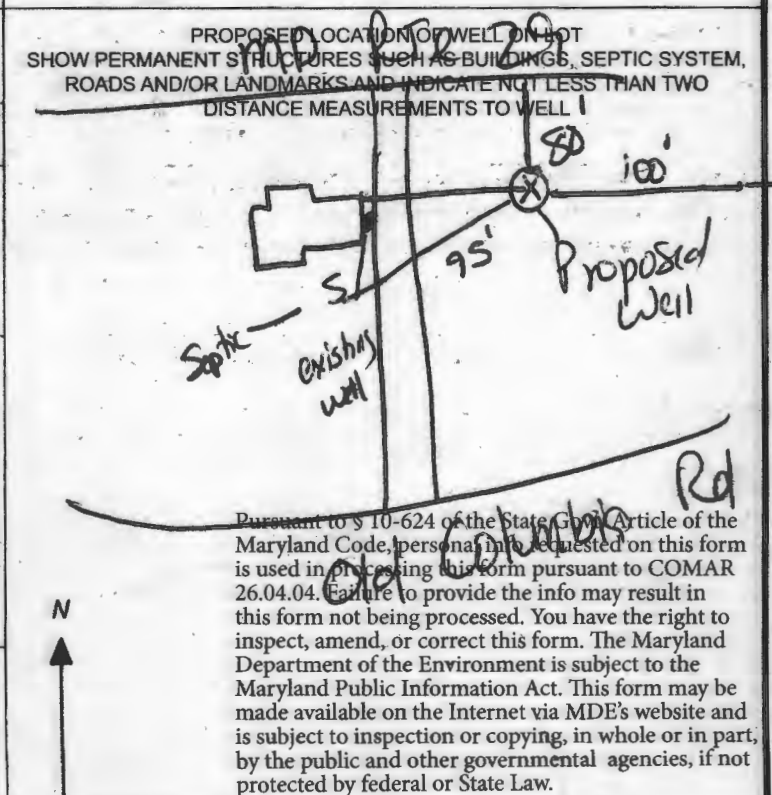 PROPOSED LOCATION OF WELL ON LOT
MD RTE 291
SHOW PERMANENT STRUCTURES SUCH AS BUILDINGS, SEPTIC SYSTEM,
ROADS AND/OR LANDMARKS AND INDICATE NOT LESS THAN TWO
DISTANCE MEASUREMENTS TO WELL
80'
100'
X
95'
Proposed
Well
S
Septic
existing
well
Old Columbia Rd
Pursuant to § 10-624 of the State Govt. Article of the
Maryland Code, personal info requested on this form
is used in processing this form pursuant to COMAR
26.04.04. Failure to provide the info may result in
this form not being processed. You have the right to
inspect, amend, or correct this form. The Maryland
Department of the Environment is subject to the
Maryland Public Information Act. This form may be
made available on the Internet via MDE's website and
is subject to inspection or copying, in whole or in part,
by the public and other governmental agencies, if not
protected by federal or State Law.
N